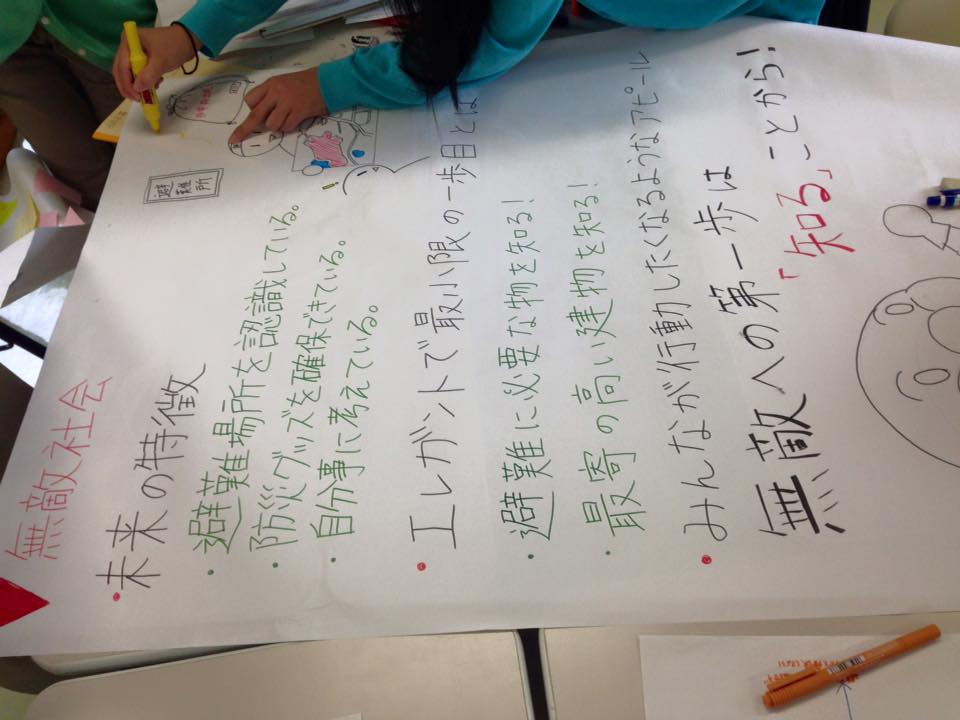 無敵社会
・未来の特徴
・避難場所を認識している。
・防災グッズを確保できている。
・自分事に考えている。
・エレガントで最小限の一歩目とは
・避難に必要な物を知る!
・最寄の高い建物を知る!
・みんなが行動したくなるようなアピール
無敵への第一歩は
「知る」ことから!
避難所